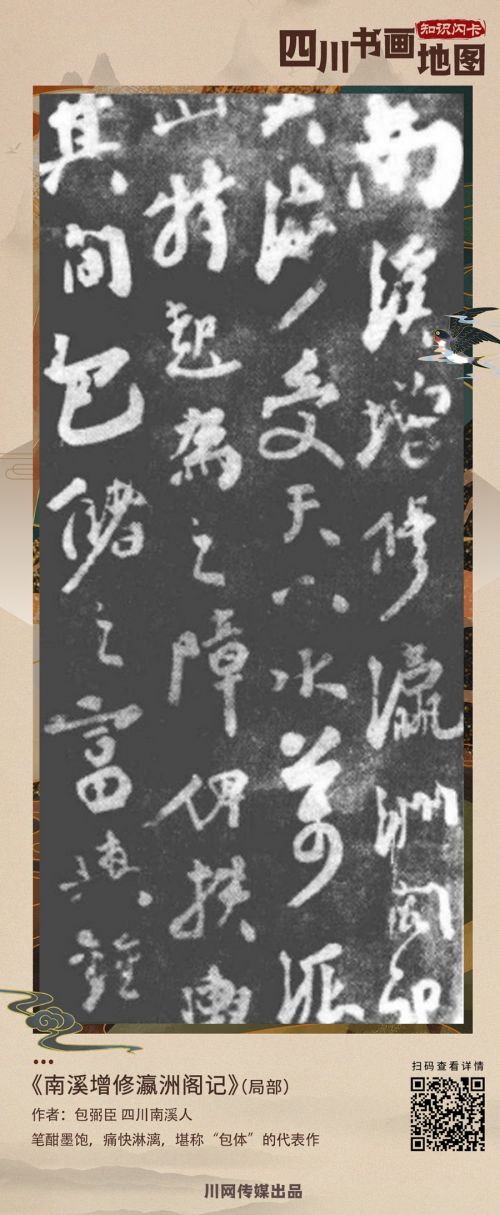 四川书画地图
知识闪卡
南溪增修瀛洲阁记
大海受天下水万派
山特起为之障俾扶舆
其间包储之富与钟
《南溪增修瀛洲阁记》(局部)
作者：包弼臣 四川南溪人
笔酣墨饱，痛快淋漓，堪称“包体”的代表作
扫码查看详情
川网传媒出品